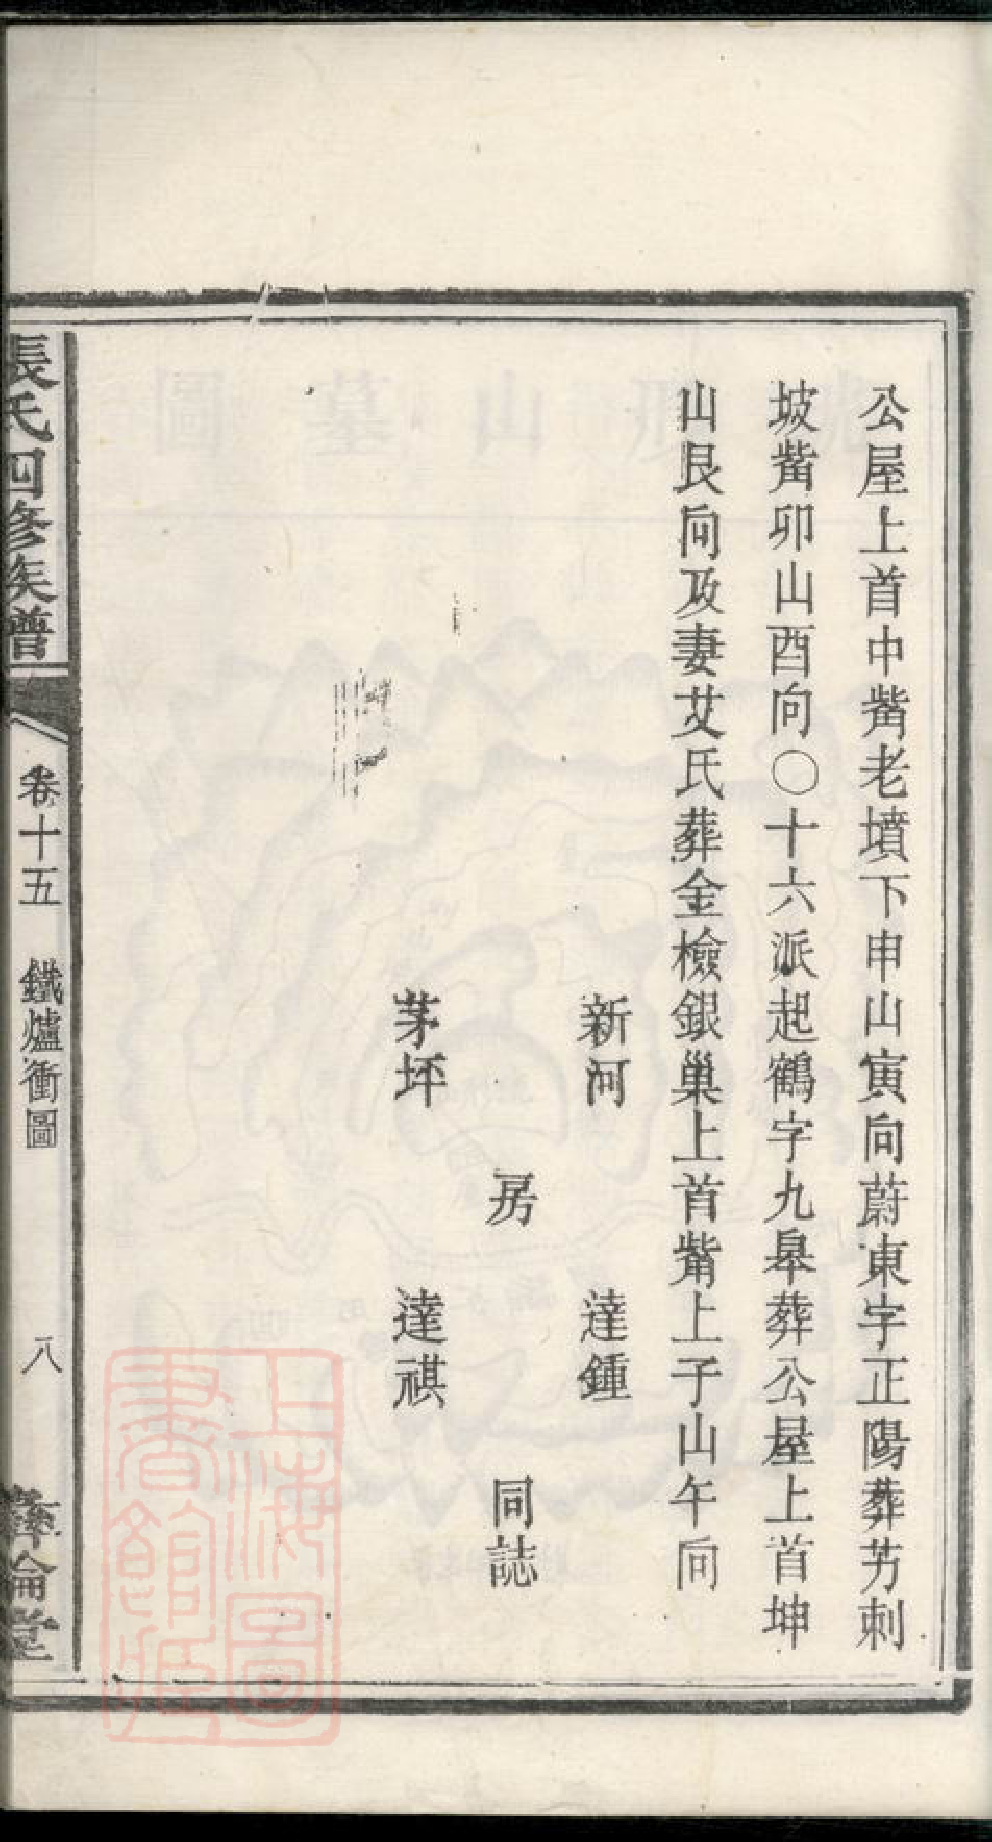 公屋上首中觜老墳下申山寅向蔚東字正陽葬艻刺
坡觜卯山酉向〇十六派起鶴字九臯葬公屋上首坤
山艮向及妻艾氏葬金檢銀巢上首觜上子山午向
新河　達鍾
房　同誌
茅坪　達祺
張氏四修族譜　卷十五　鐵爐衝圖　八　彞倫堂
上海圖書館藏